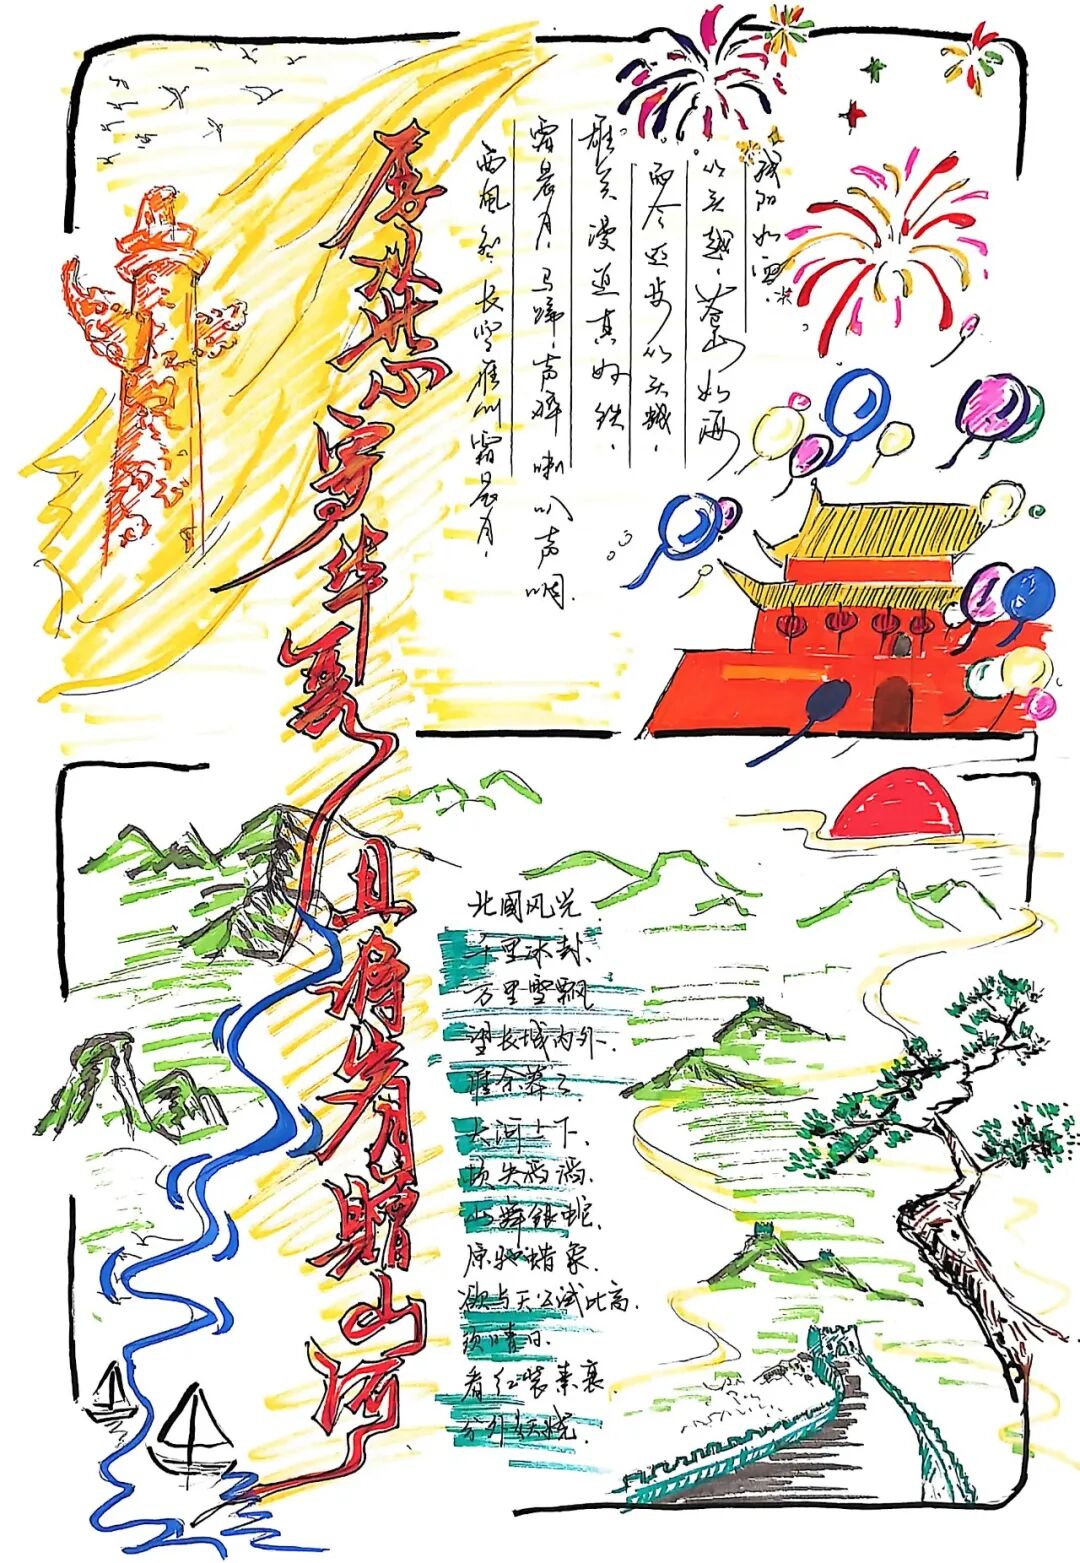 愿以此心寄华夏
且将岁月赠山河
西风烈 长空雁叫霜晨月.
霜晨月,马蹄,声碎 喇叭声咽.
雄关漫道真如铁.
而今迈步从头越.
从头越,苍山如海
残阳如血.
北國风光.
千里冰封、
万里雪飘
望长城内外、
惟余莽々
大河上下、
顿失滔滔.
山舞银蛇、
原驰蜡象.
欲与天公试比高.
须晴日.
看红装素裹.
分外妖娆.